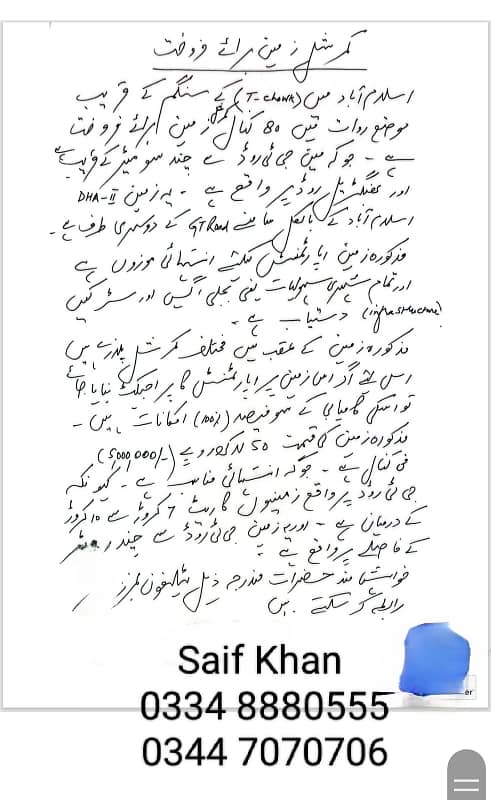 کمرشل زمین برائے فروخت
اسلام آباد میں (T-Chowk) کے سنگم کے قریب
موضع روات میں 80 کنال کمرشل زمین برائے فروخت
ہے - جو کہ مین جی ٹی روڈ سے چند سو میٹر کے قریب ہے
اور روڈ پر واقع ہے - یہ زمین DHA-II
اسلام آباد کے بالکل سامنے GT Road کے دوسری طرف ہے -
مذکورہ زمین اپارٹمنٹس کیلئے انتہائی موزوں ہے
اور تمام شہری سہولیات یعنی بجلی، گیس اور سڑکیں
(infrastructure) دستیاب ہے -
مذکورہ زمین کے عقب میں مختلف کمرشل پلازے ہیں
اس لئے اگر اس زمین پر اپارٹمنٹس کا پراجیکٹ بنایا جائے
تو اسکی کامیابی کے سو فیصد (100%) امکانات ہیں -
مذکورہ زمین کی قیمت 50 لاکھ روپے (5000,000/-)
فی کنال ہے - جو کہ انتہائی مناسب ہے - کیونکہ
جی ٹی روڈ پر واقع زمینوں کا ریٹ 7 کروڑ سے 10 کروڑ
کے درمیان ہے - اور یہ زمین جی ٹی روڈ سے چند میٹر
کے فاصلے پر واقع ہے
خواہشمند حضرات مندرجہ ذیل ٹیلیفون نمبرز
رابطہ کر سکتے ہیں
Saif Khan
0334 8880555
0344 7070706